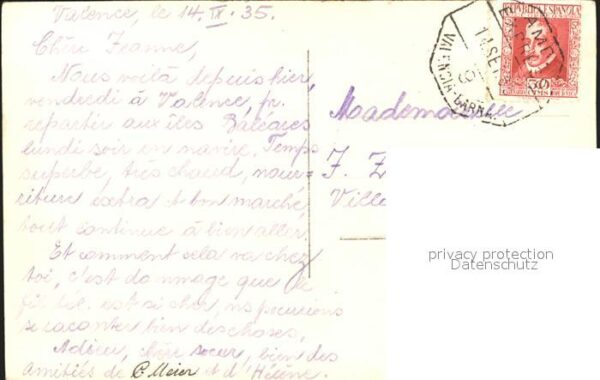 Valence, le 14. IX. 35.
Chère Jeanne,
Nous voilà depuis hier,
vendredi à Valence, pr.
repartir aux îles Baléares
lundi soir en navire. Temps
superbe, très chaud, nour-
riture extra et bon marché,
tout continue à bien aller.
Et comment cela va chez
toi, c'est dommage que le
fil tél. est si cher, ns pourrions
se raconter bien des choses.
Adieu, chère soeur, bien des
amitiés de C. Meier et d'Hélène.
Mademoiselle
J. Z
Ville
CORREOS ESPAÑA
30
CTS
14 SET
VALENCIA
privacy protection
Datenschutz